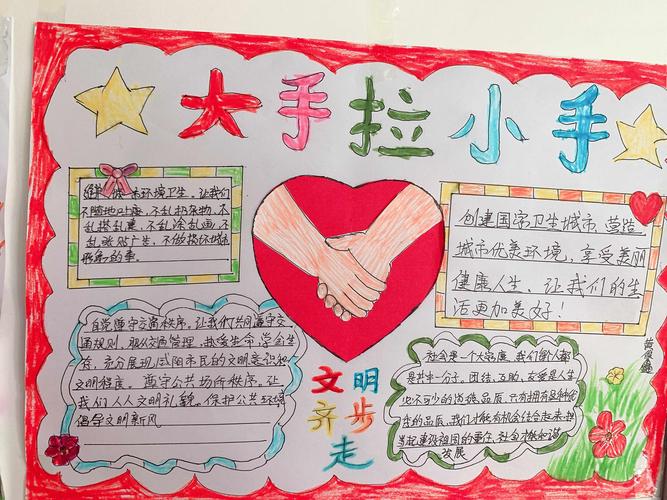 大手拉小手
维护城市环境卫生。让我们
不随地吐痰,不乱扔杂物,不
乱搭乱建,不乱涂乱画,不
乱张贴广告,不做损坏城市
形象的事。
创建国家卫生城市,营造
城市优美环境,享受美丽
健康人生,让我们的生
活更加美好!
自觉遵守交通秩序。让我们共同遵守交
通规则,服从交通管理,热爱生命,学会生
存,充分展现咸阳市民的文明意识和
文明程度。遵守公共场所秩序。让
我们人人文明礼貌,保护公共环境
倡导文明新风
文明
齐步
走
社会是一个大家庭,我们每人都
是其中一分子。团结、互助、友爱是人生
必不可少的道德品质,只有拥有各种优
秀的品质,我们才能有机会结合起来,担
当起建设祖国的重任,社会才能和谐
发展